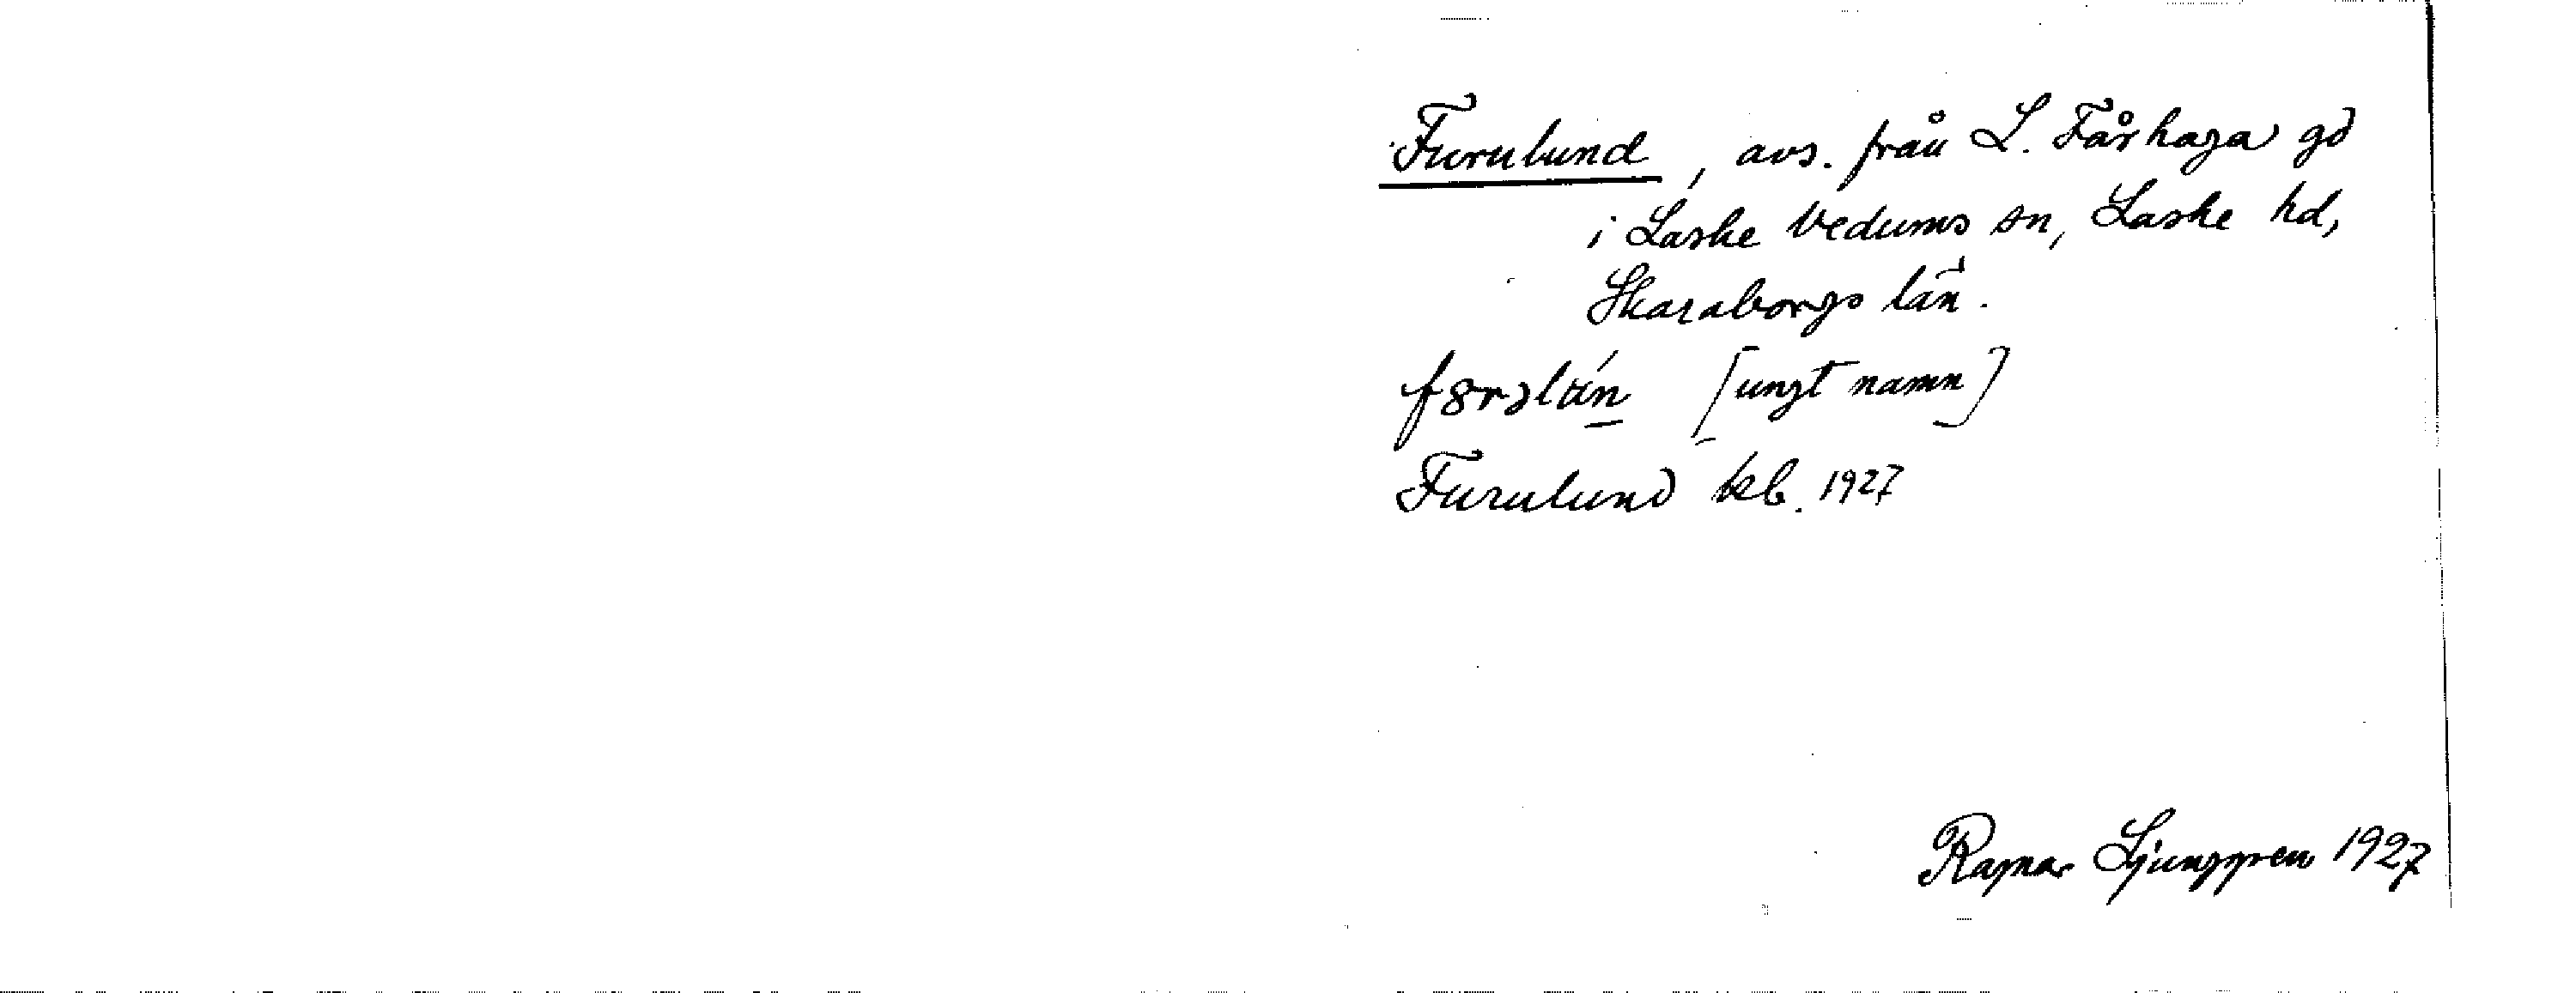 Furulund, avs. från L. Fårhaga gd
i Laske Vedums sn, Laske hd,
Skaraborgs län.
[ungt namn]
Furulund kb. 1927
Ragnar Ljunggren 1927